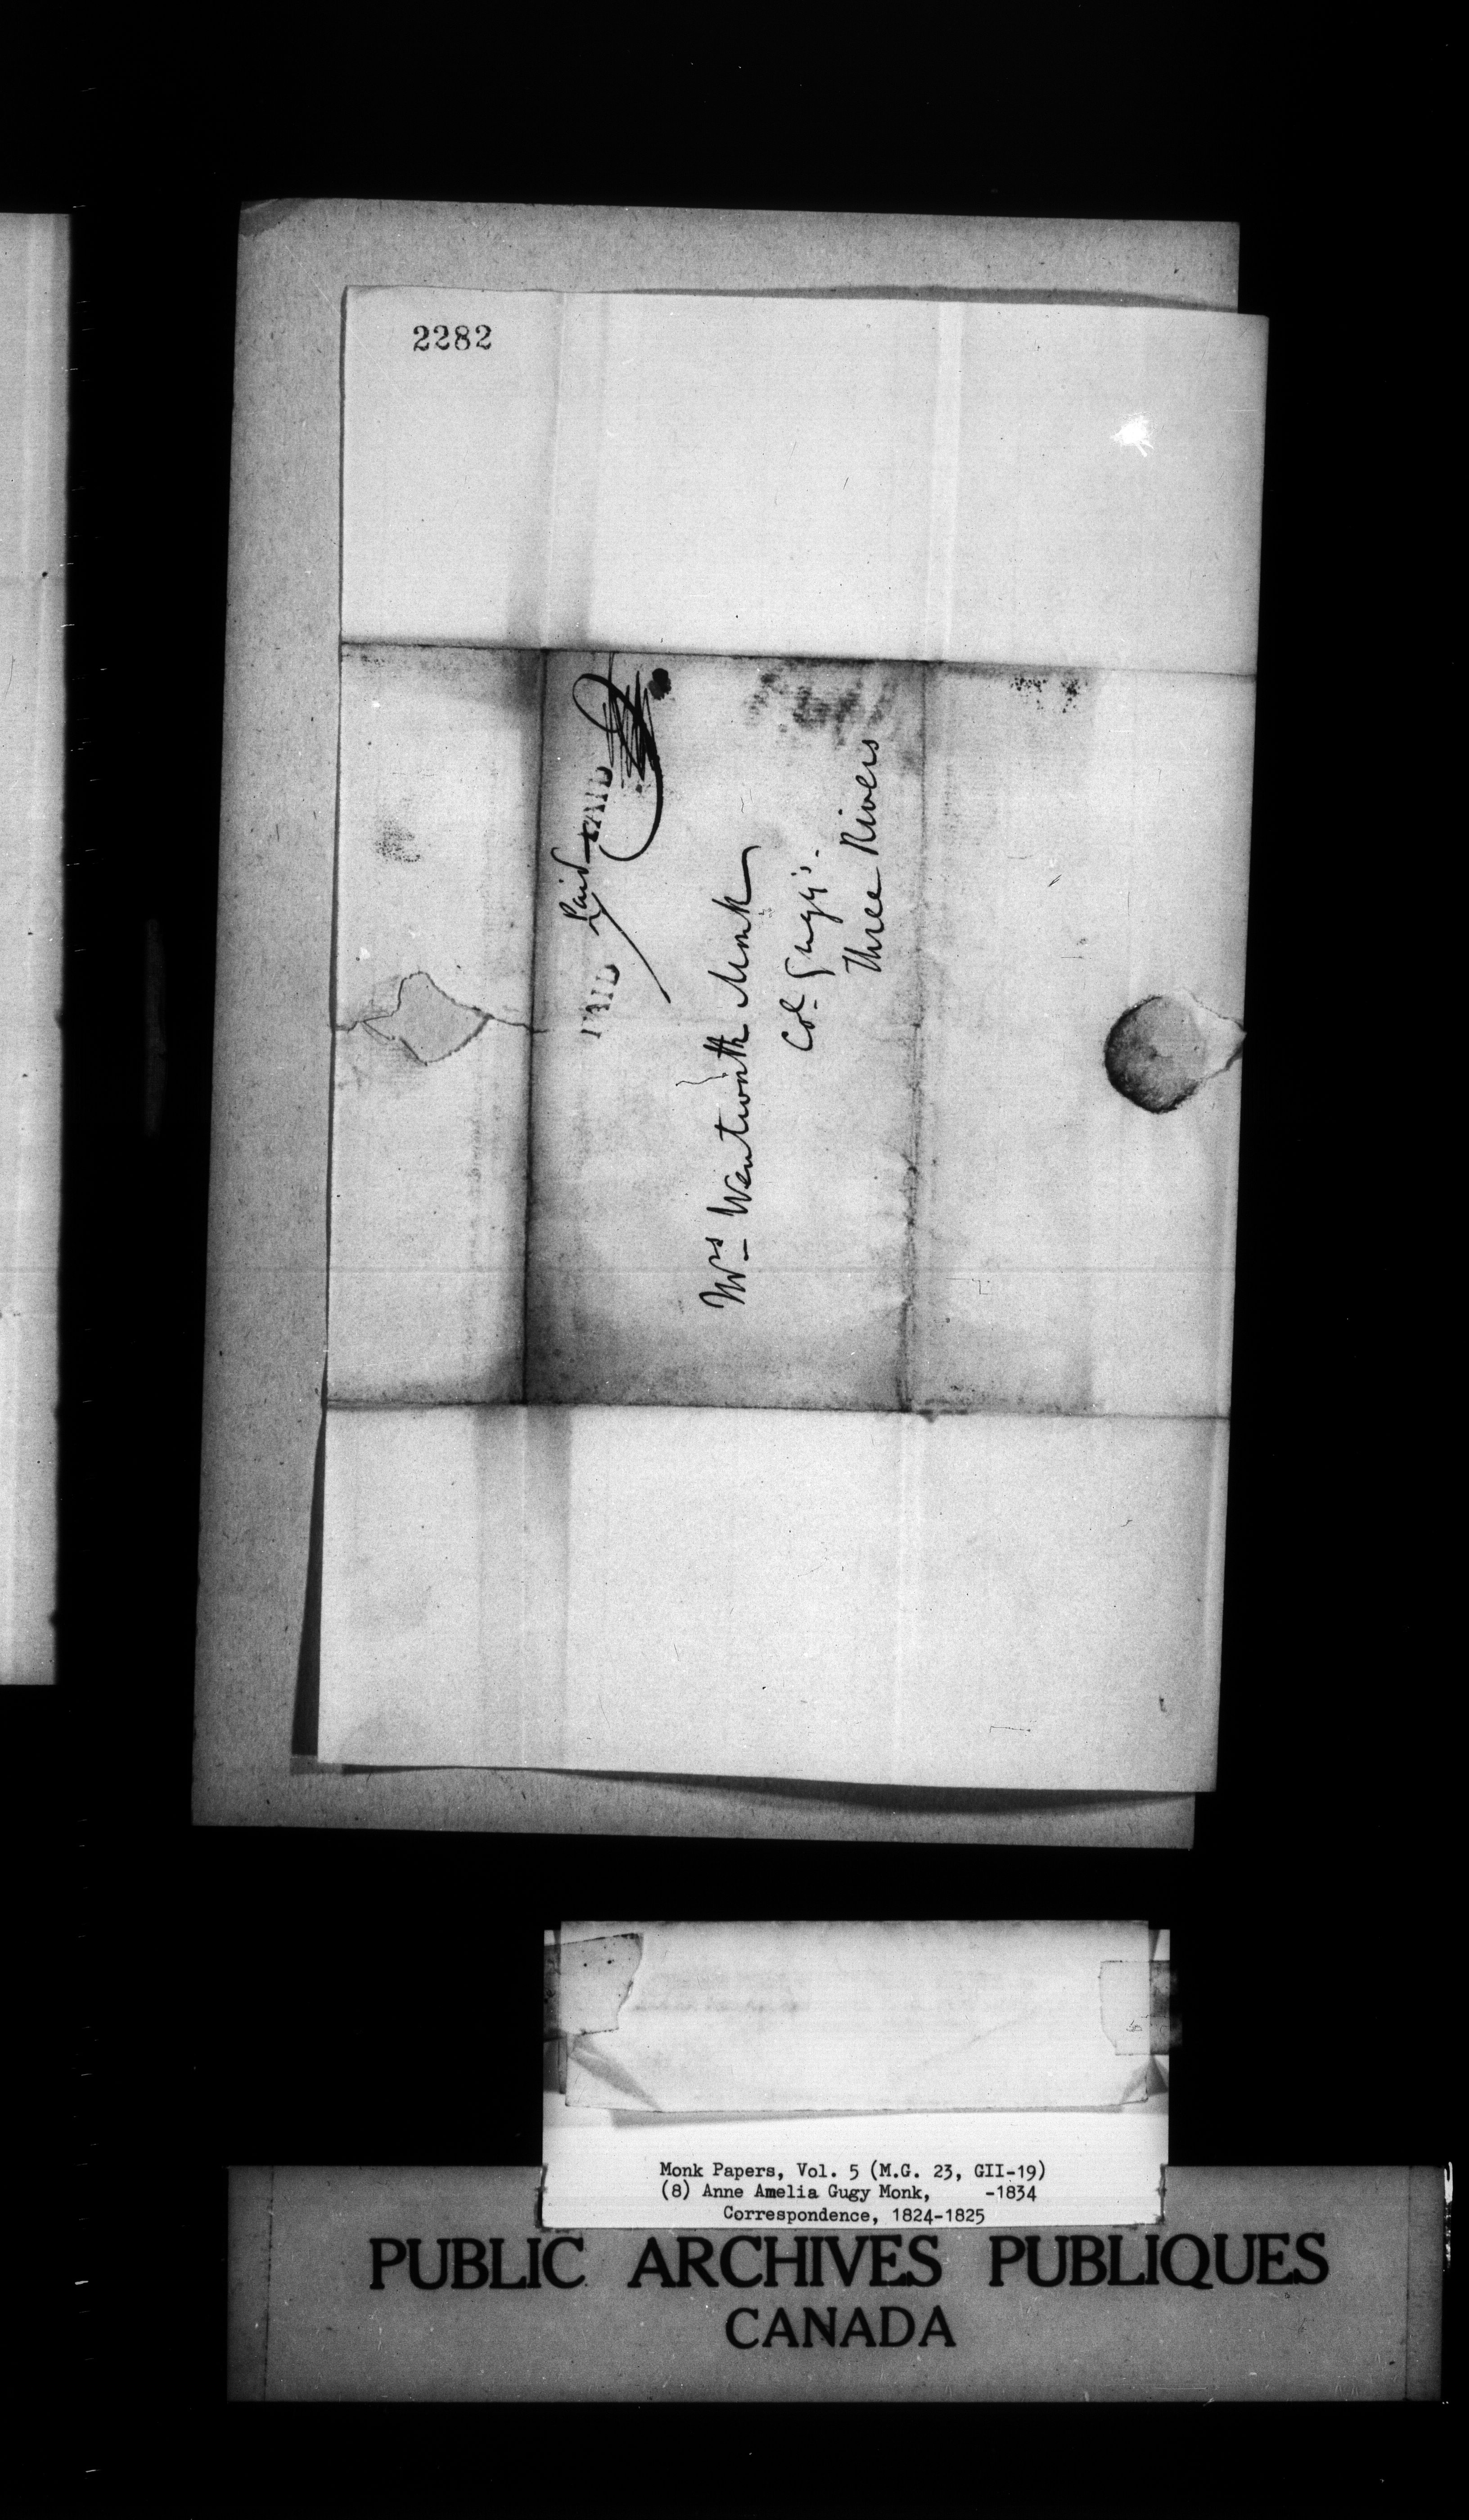 2282
PAID Paid PAID
Mrs Wentworth Monk
Col Gugy's.
Three Rivers
Monk Papers, Vol. 5 (M.G. 23, GII-19)
(8) Anne Amelia Gugy Monk, -1834
Correspondence, 1824-1825
PUBLIC ARCHIVES PUBLIQUES
CANADA